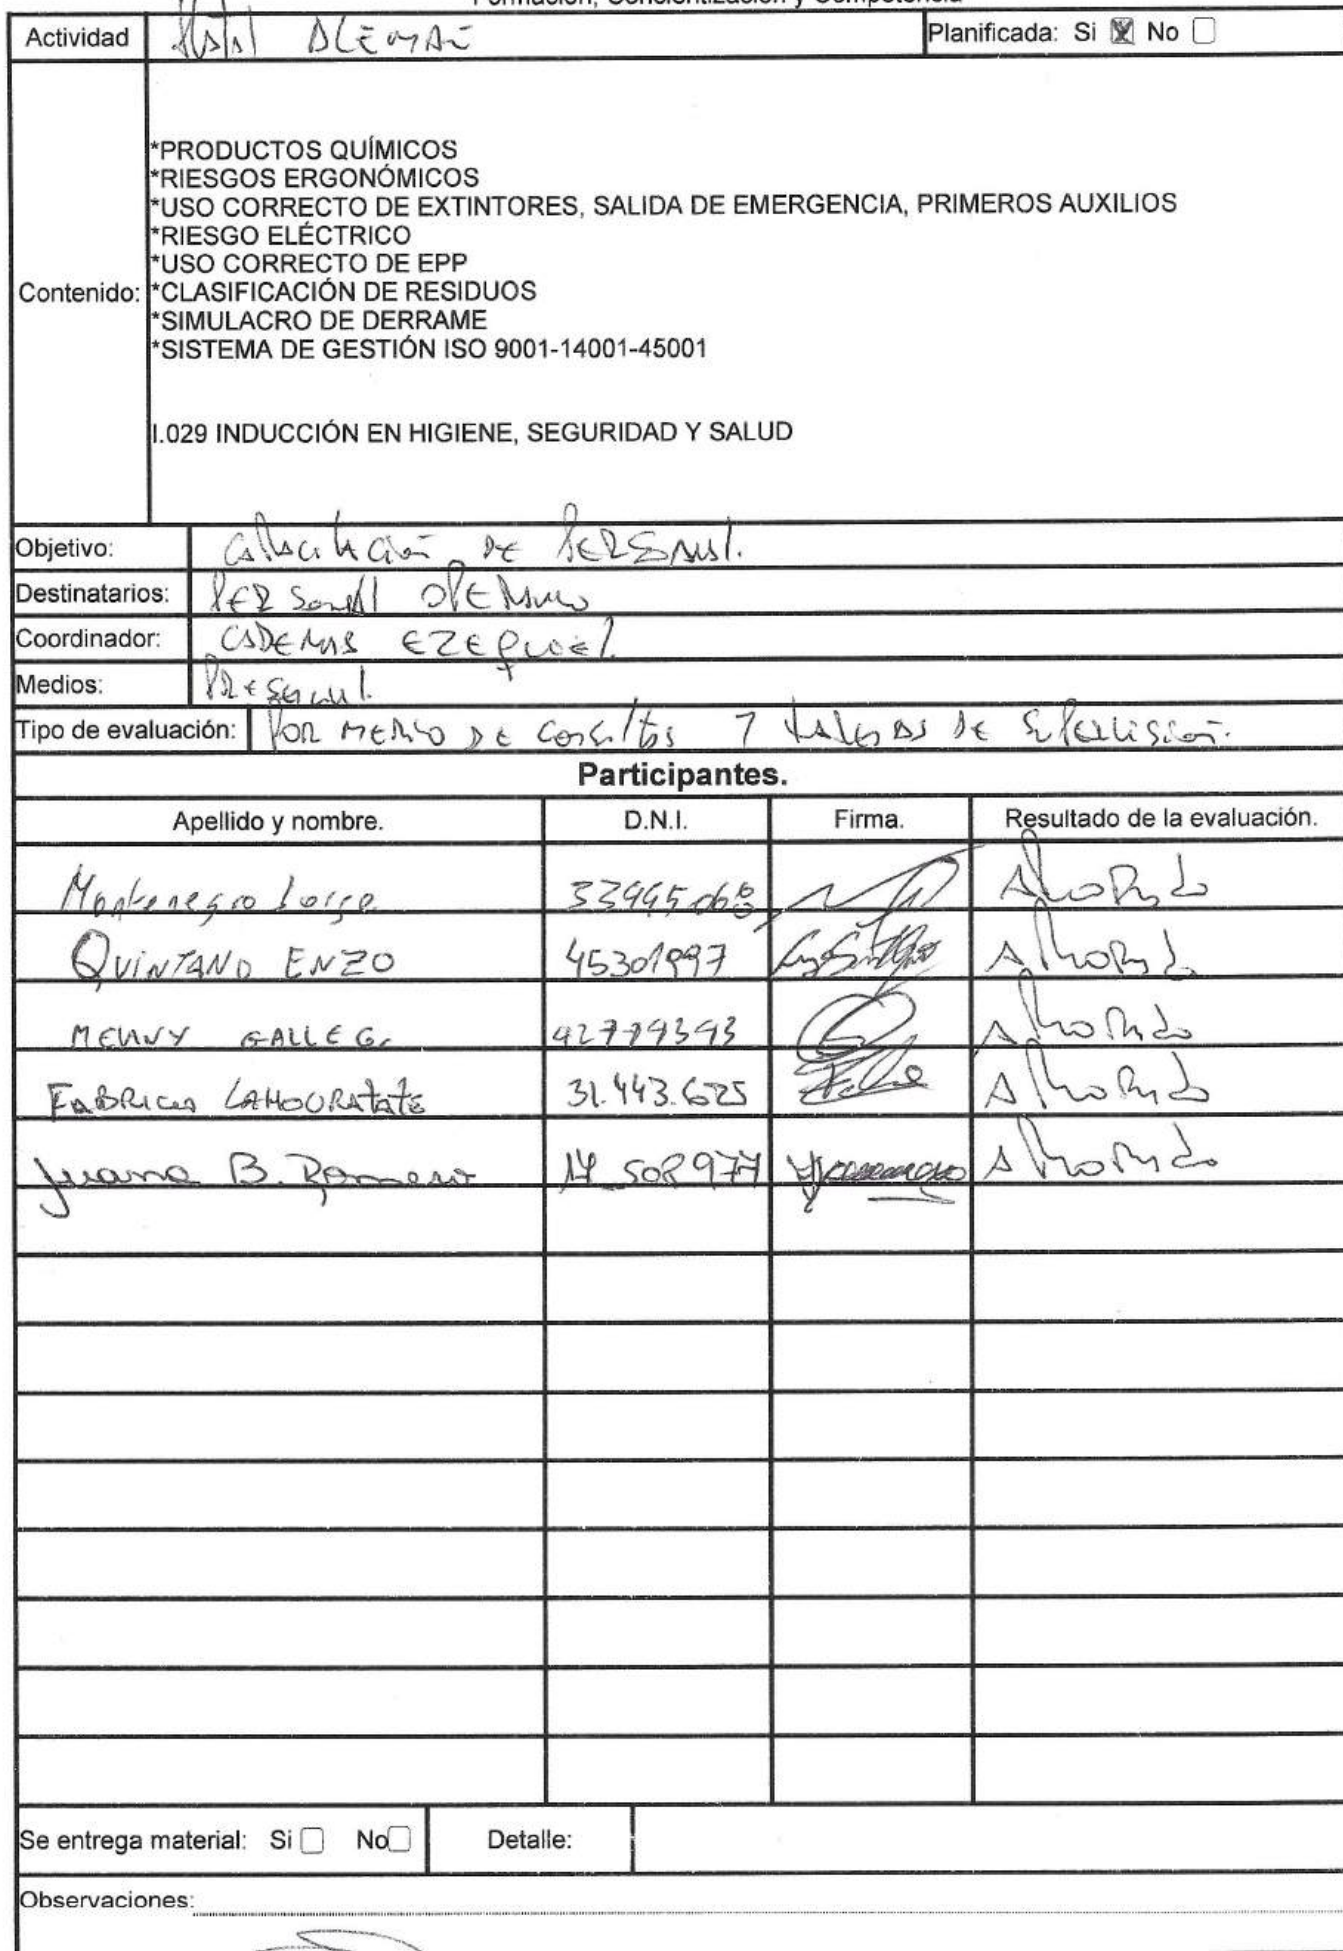 Formación, Concientización y Competencia
Actividad
ALEMAN
Planificada: Si ☒ No ☐
*PRODUCTOS QUÍMICOS
*RIESGOS ERGONÓMICOS
*USO CORRECTO DE EXTINTORES, SALIDA DE EMERGENCIA, PRIMEROS AUXILIOS
*RIESGO ELÉCTRICO
*USO CORRECTO DE EPP
Contenido: *CLASIFICACIÓN DE RESIDUOS
*SIMULACRO DE DERRAME
*SISTEMA DE GESTIÓN ISO 9001-14001-45001
I.029 INDUCCIÓN EN HIGIENE, SEGURIDAD Y SALUD
Objetivo: Capacitación DE PERSONAL.
Destinatarios: PERSONAL OPERATIVO
Coordinador: CADENAS EZEQUIEL
Medios: PRESENCIAL.
Tipo de evaluación: POR MEDIO DE Consultas Y DE Supervisión.
Participantes.
Apellido y nombre. D.N.I. Firma. Resultado de la evaluación.
Montenegro Jorge Aprobado
QUINTANO ENZO 45301997 Aprobado
GALLEGO Aprobado
FABRICIO 31.443.625 Aprobado
Juana B. Romero 17 508977 Aprobado
Se entrega material: Si ☐ No ☐ Detalle:
Observaciones: